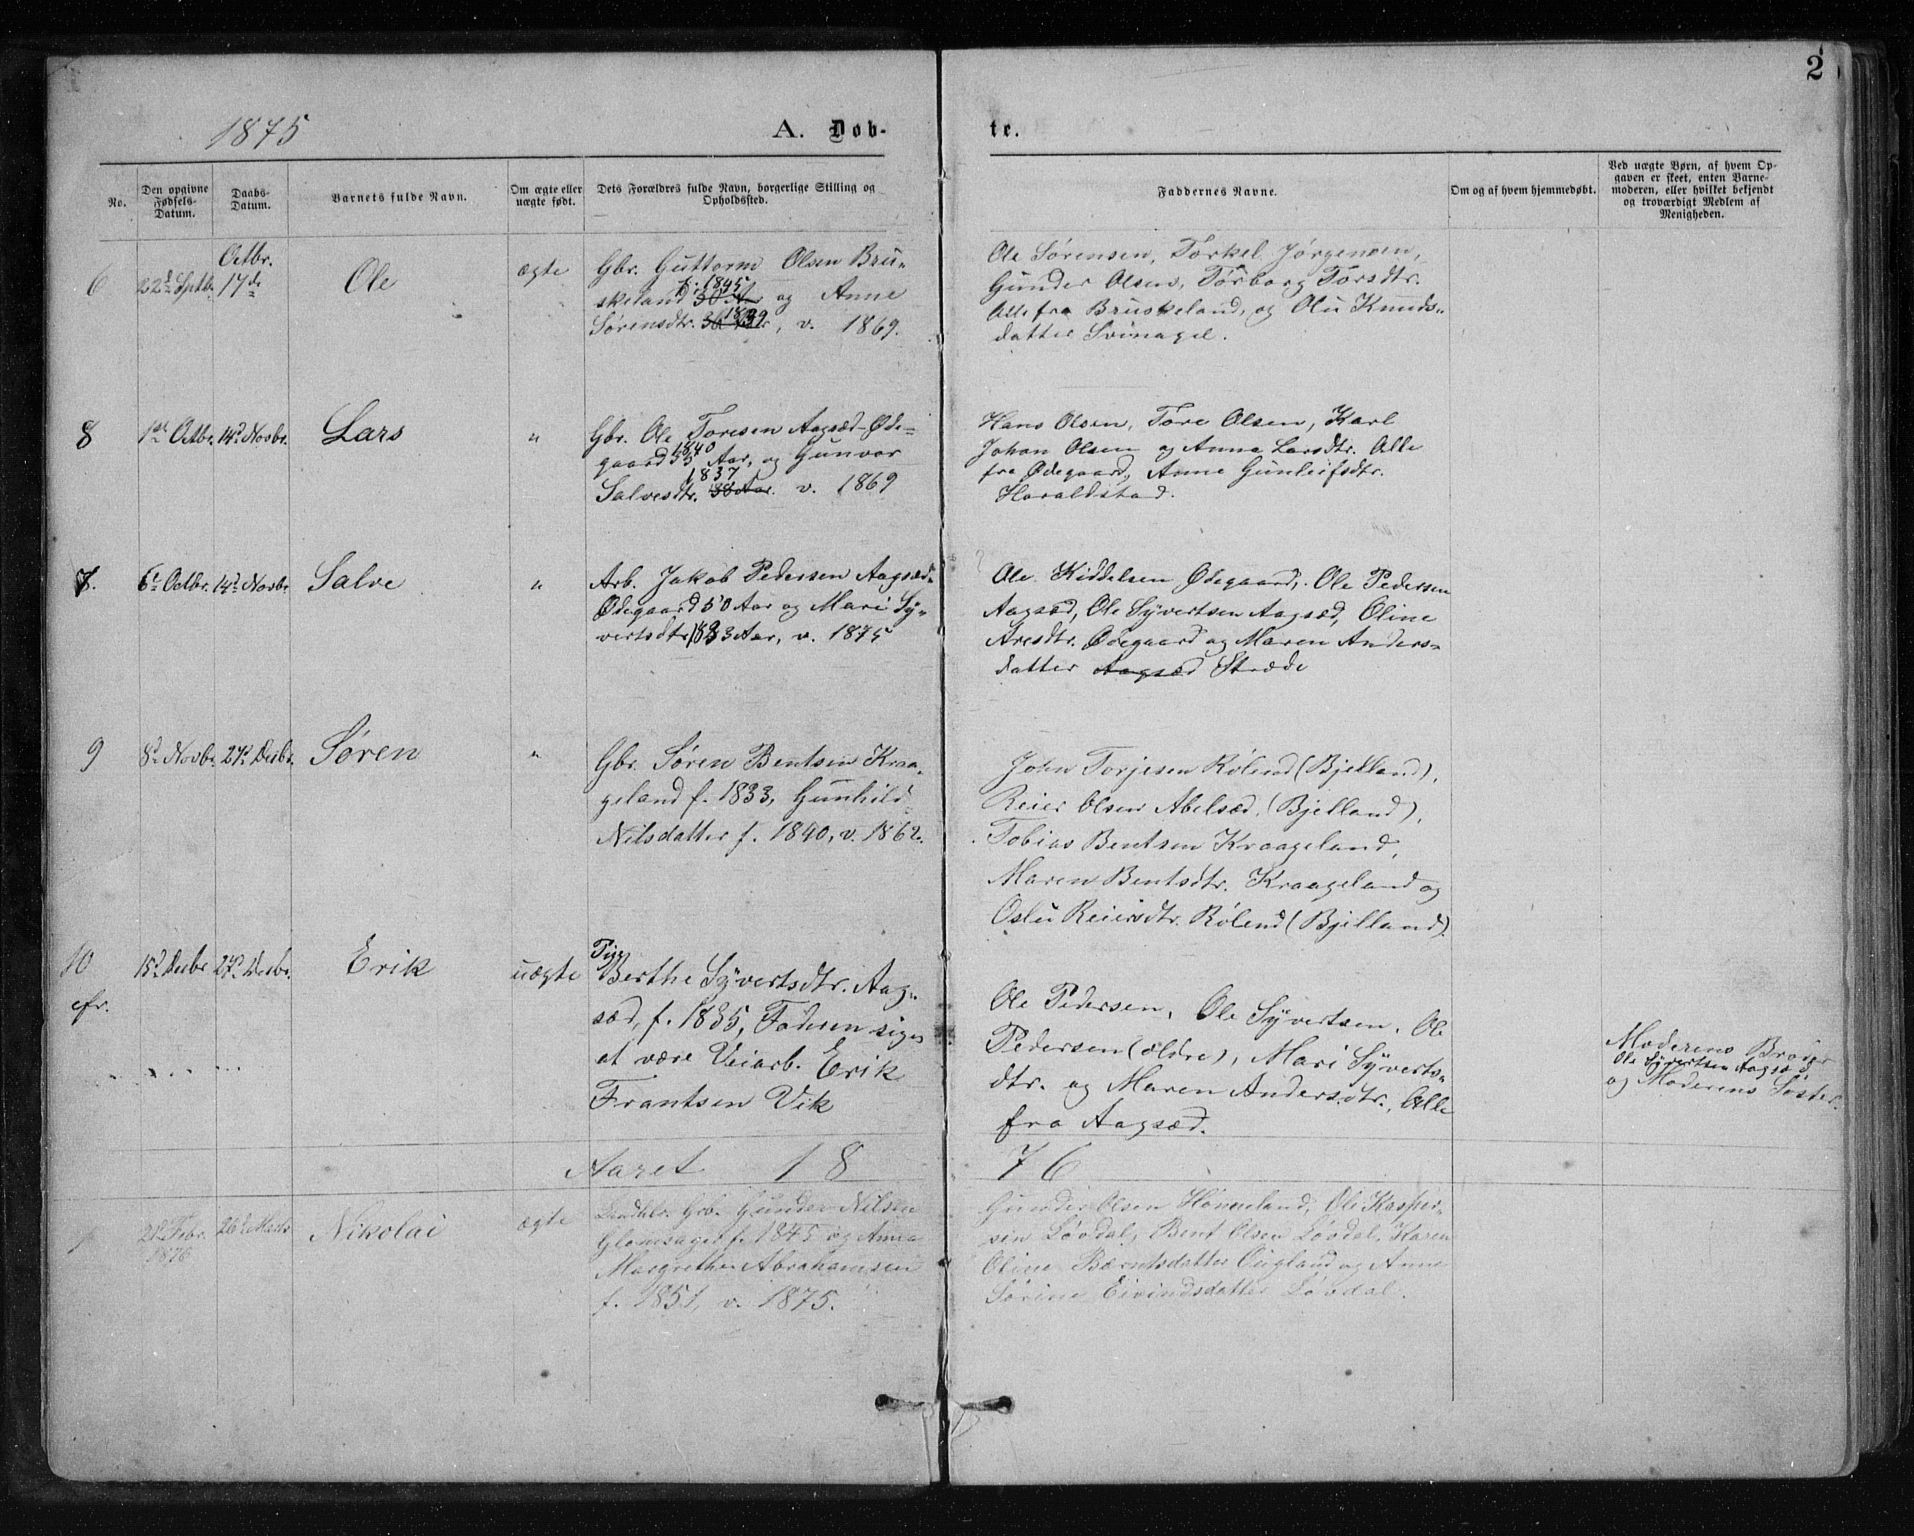 2
1875
A. Døb-
te.
No.
Den opgivne
Fødsels-
Datum.
Daabs-
Datum.
Barnets fulde Navn.
Om ægte eller
uægte født.
Dets Forældres fulde Navn, borgerlige Stilling og
Opholdssted.
Faddernes Navne.
Om og af hvem hjemmedøbt.
Ved uægte Børn, af hvem Op-
gaven er skeet, enten Barne-
moderen, eller hvilket bekjendt
og troværdigt Medlem af
Menigheden.
6
22d Septb.
Octbr.
17de
Ole
ægte
Gbr. Guttorm Olsen Bru-
f. 1845
skeland 30 Aar og Anne
1839
Sørensdtr. 36 Aar, v. 1869.
Ole Sørensen, Torkel Jørgensen,
Gunder Olsen, Torborg Torsdtr.
Alle fra Bruskeland, og Olu Knuds-
datter Svinagel.
8
1ste Octbr.
14d Novbr.
Lars
"
Gbr. Ole Toresen Aagsæd-Øde-
1840
gaard 35 Aar, og Gunvor
1837
Salvesdtr. 38 Aar. v. 1869
Hans Olsen, Tore Olsen, Karl
Johan Olsen og Anna Larsdtr. Alle
fra Ødegaard, Anne Gunleifsdtr.
Haraldstad.
7.
6t Octbr.
14d Novbr.
Salve
"
Arb. Jakob Pedersen Aagsæd-
Ødegaard 50 Aar og Mari Sy-
vertsdtr. 1833 Aar, v. 1875
Ole Kiddelsen Ødegaard, Ole Pedersen
Aagsæd, Ole Syvertsen Aagsæd, Oline
Aresdtr. Ødegaard og Maren Anders-
datter Aagsæd Stræde
9
8d Novbr.
27d Decbr.
Søren
"
Gbr. Søren Bentsen Kraa-
geland f. 1833, Gunhild
Nilsdatter f. 1840, v. 1862.
John Torjesen Røland (Bjelland),
Reier Olsen Abelsæd, (Bjelland),
Tobias Bentsen Kraageland,
Maren Bentsdtr. Kraageland og
Oslu Reiersdtr. Røland (Bjelland).
10
cfr.
15d Decbr
27d Decbr.
Erik
uægte
Pige
Berthe Syvertsdtr. Aag-
sæd, f. 1835, Faderen siges
at være Veiarb. Erik
Frantsen Vik
Ole Pedersen, Ole Syvertsen, Ole
Pedersen (ældre), Mari Syverts-
dtr. og Maren Andersdtr., Alle
fra Aagsæd.
Moderens Broder
Ole Syvertsen Aagsæd
og Moderens Søster.
Aaret 18
76
1
21d Febr.
1876
26d Marts
Nikolai
ægte
Gbr. Gunder Nilsen
Glomsaget f. 1845 og Anna
Margrethe Abrahamsen
f. 1851, v. 1875.
Gunder Olsen Honneland, Ole Kasper-
sen Løvdal, Bent Olsen Løvdal, Karen
Oline Bærntsdatter Øugland og Anne
Sørine Eivindsdatter Løvdal.